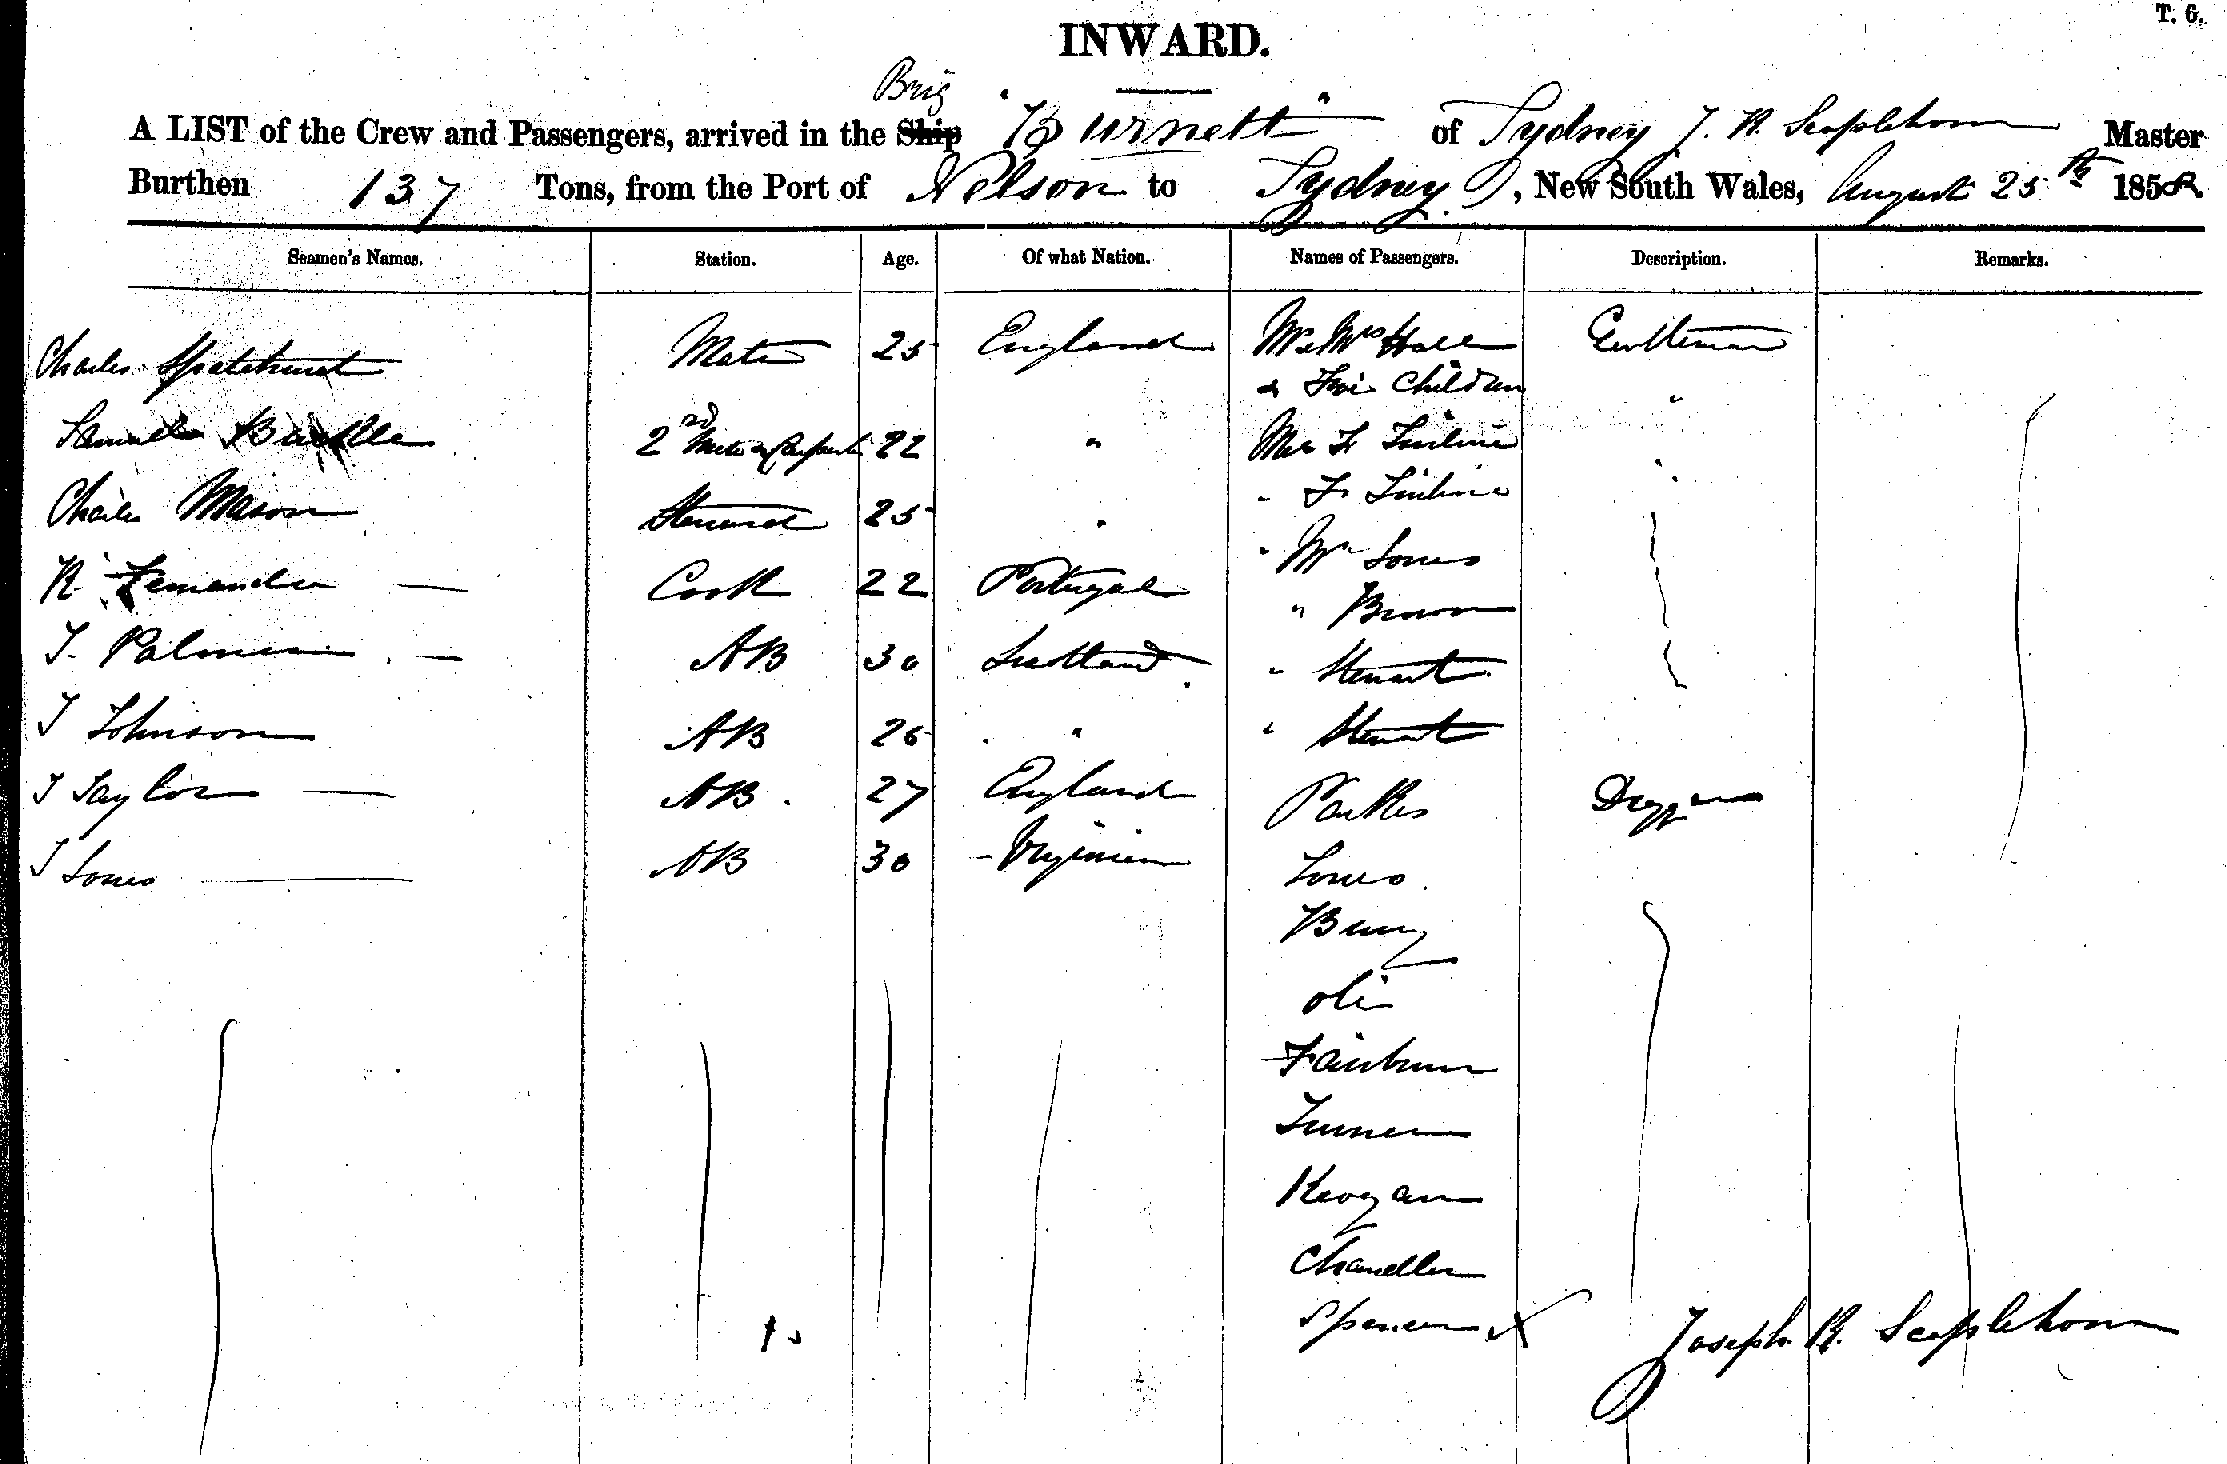 T. G.
INWARD.
Brig
A LIST of the Crew and Passengers, arrived in the Ship "Burnett" of Sydney J. R. Scaplehorn Master
Burthen 137 Tons, from the Port of Nelson to Sydney, New South Wales, August 25th 1858
Seamen's Names. Station. Age. Of what Nation. Names of Passengers. Description. Remarks.
Charles Mate 25 England Mr & Mrs Hall Gentleman
& Children "
Samuel 2nd Mate & 22 " F
" F
Charles Mason Steward 25 "
" Mr Jones
R Cook 22 Portugal
" Brown
T Palmer AB 30 Scotland " Stewart
J Johnson AB 26 " " Stewart
J Taylor AB 27 England Parkes
J Jones AB 30 Jones
Berry
Fairburn
Turner
Keogan
Chandler
Spencer
Joseph R. Scaplehorn